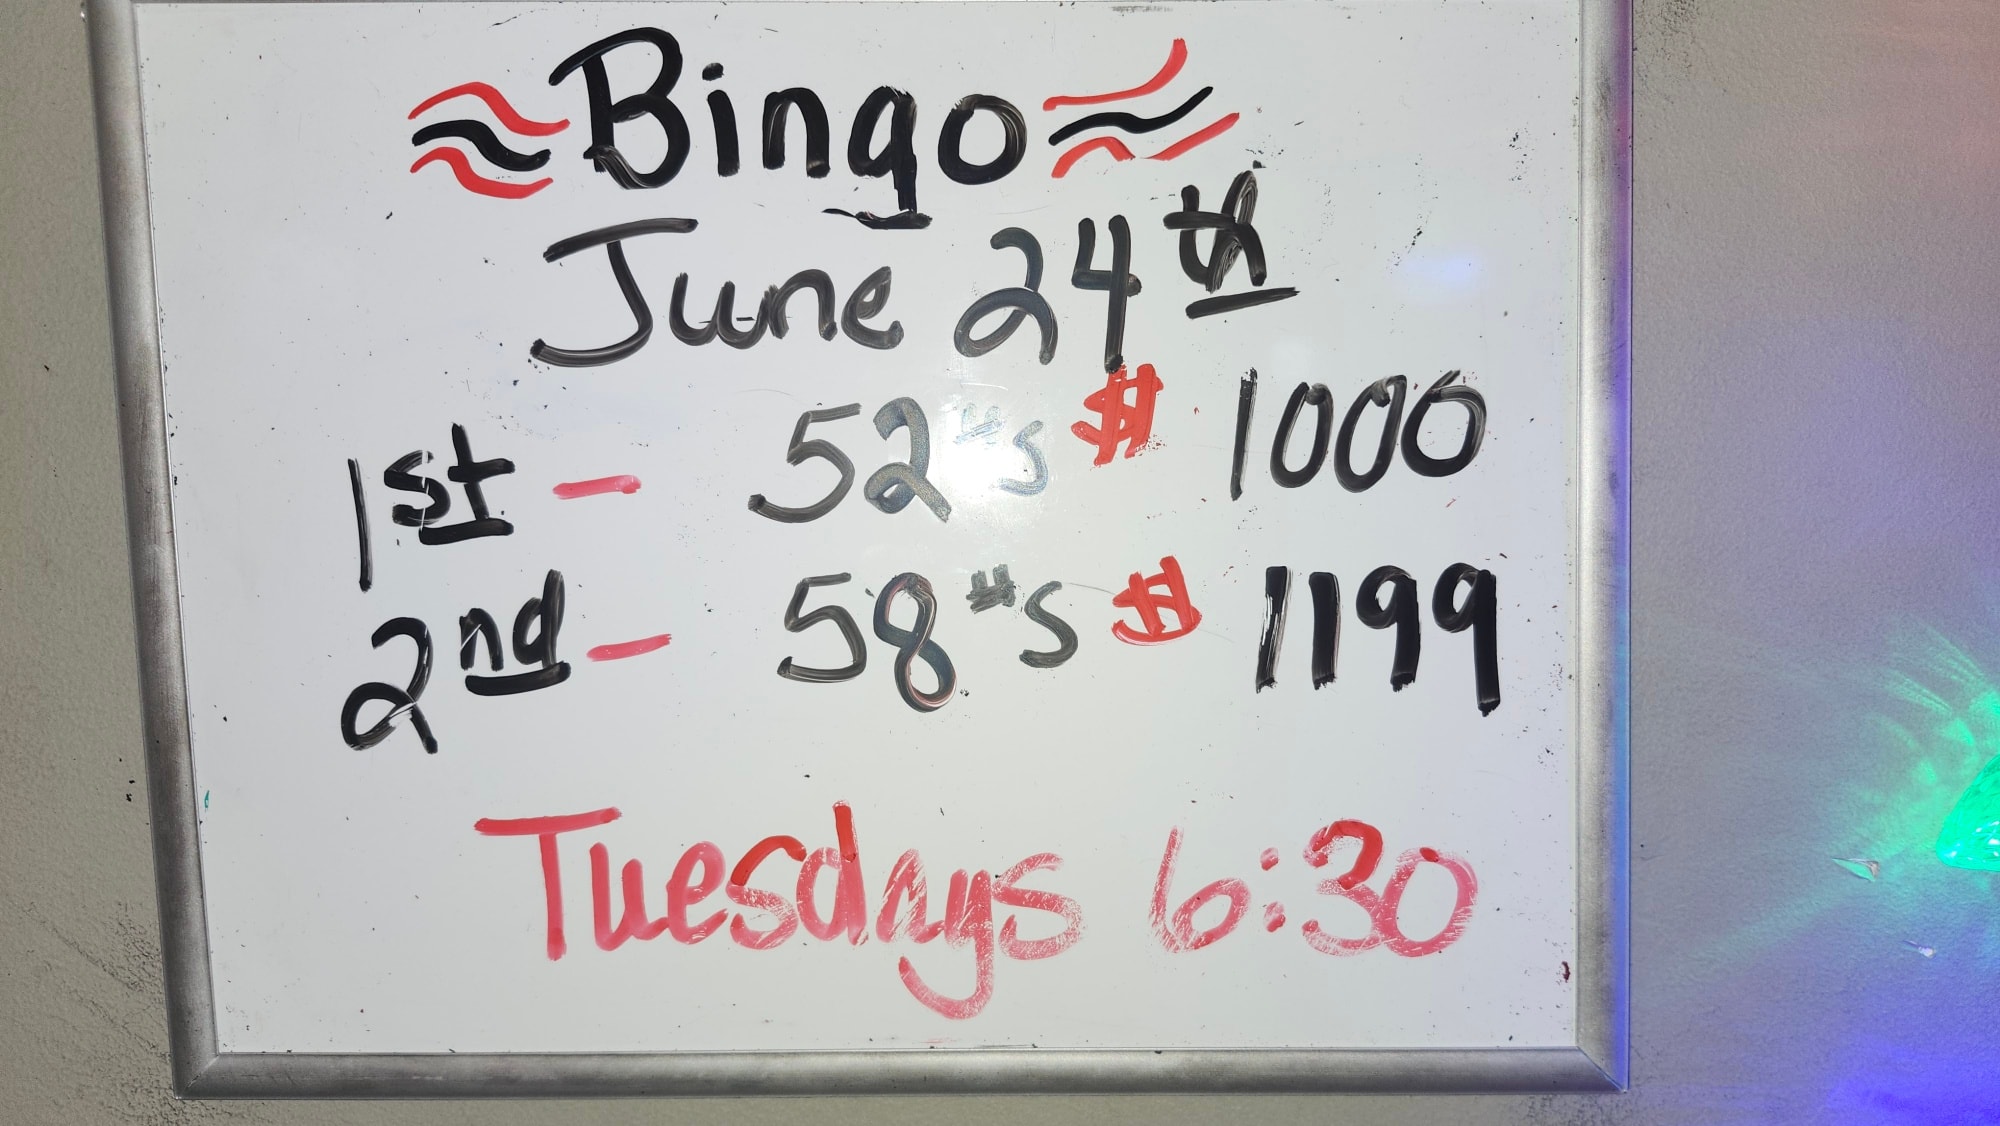 Bingo
June 24th
1st - 52 #'s $ 1000
2nd - 58 #'s $ 1199
Tuesdays 6:30